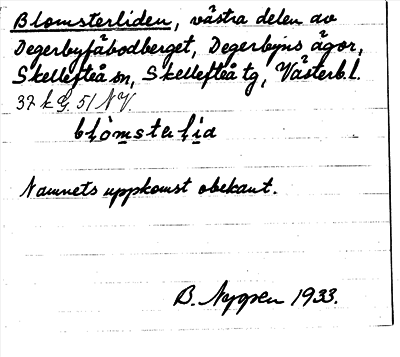 Blomsterliden, västra delen av
Degerbyfäbodberget, Degerbyns ägor,
Skellefteå sn, Skellefteå tg, Västerb.l.
37 k G, 51 NV.
blòmsterlìd
Namnets uppkomst obekant.
B. Nygren 1933.